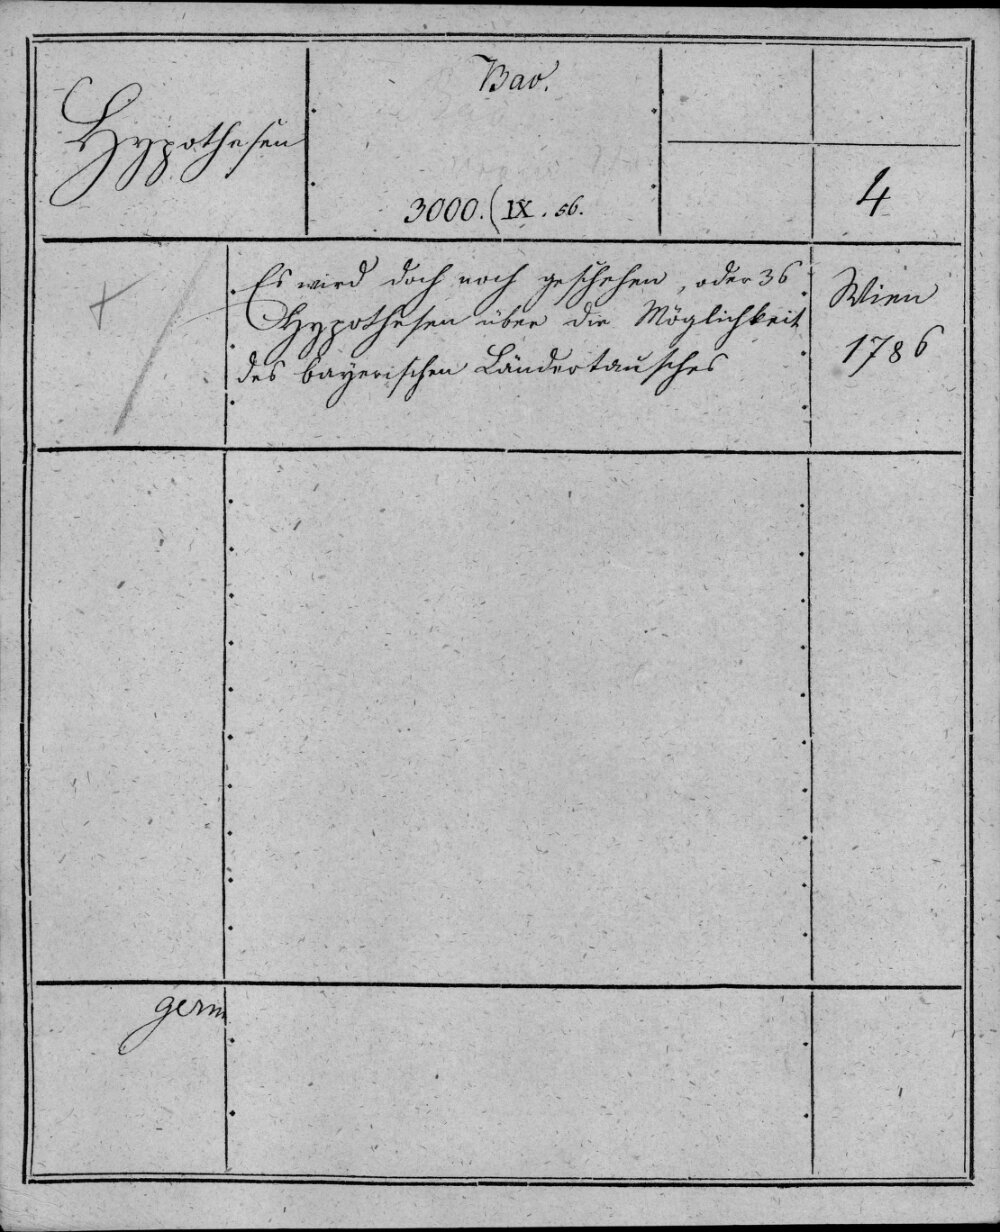 Hypothesen
Bav.
3000.(IX. 56.
4
Es wird doch noch geschehen, oder 36
Hypothesen über die Möglichkeit
des bayerischen Ländertausches
Wien
1786
germ